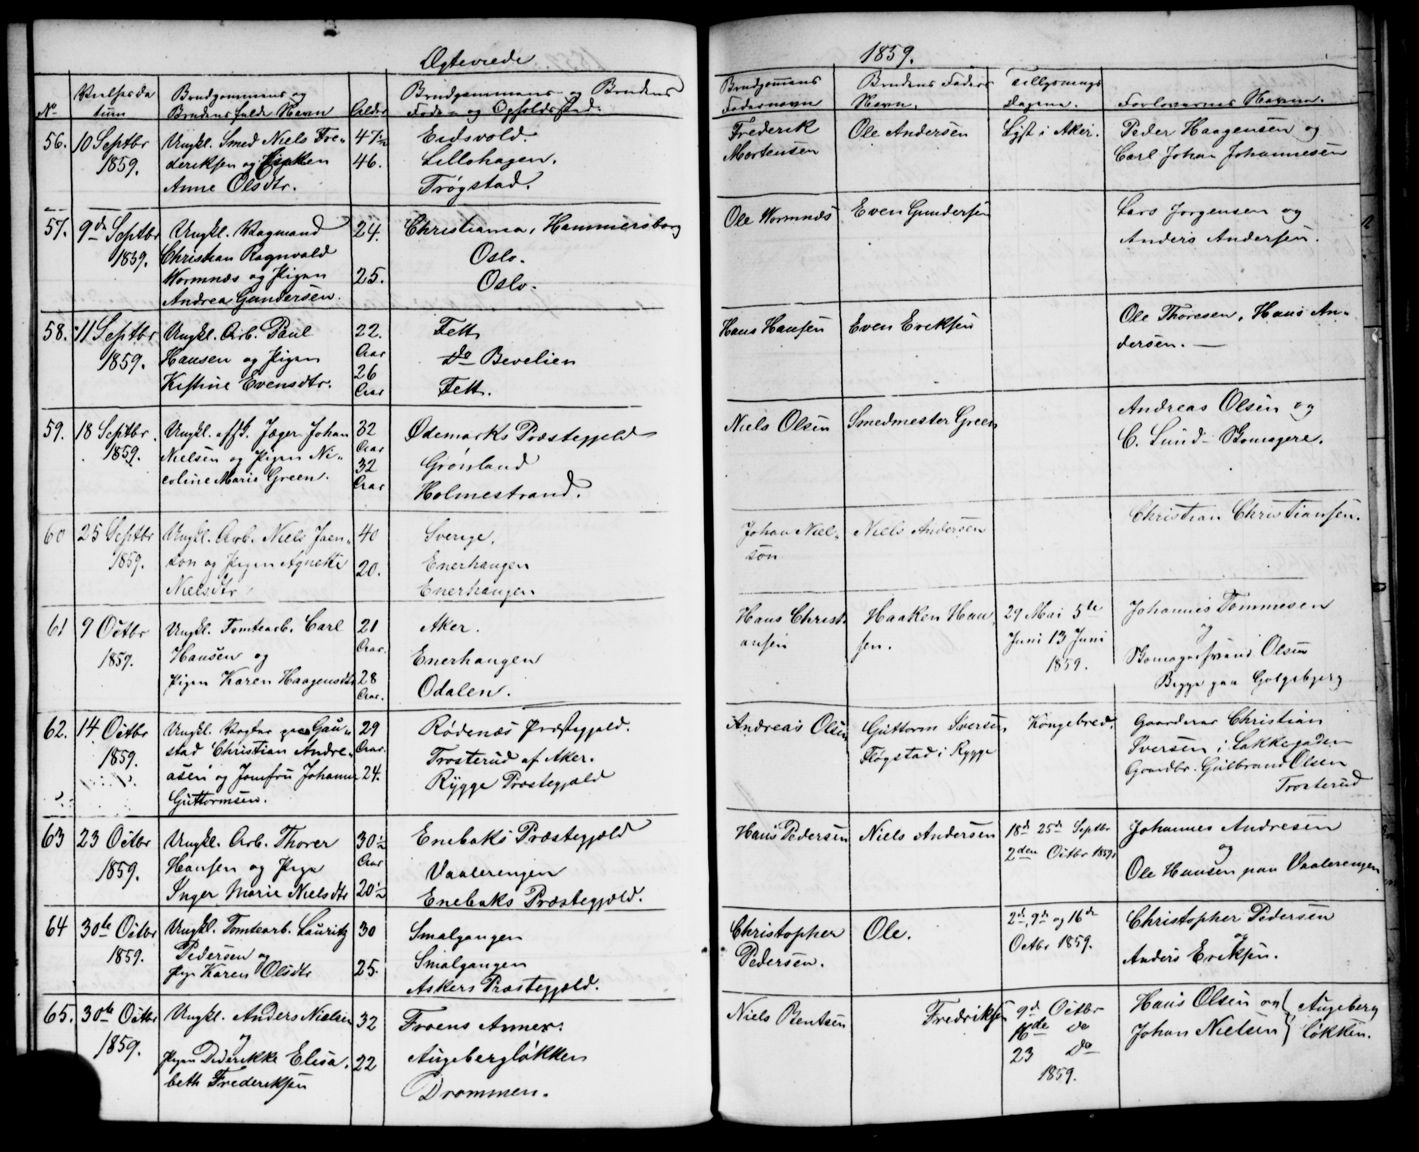 Ægteviede
1859.
No
Vielsesda
tum
Brudgommens og
Brudens fulde Navn
Alder
Brudgommens og Brudens
Føde- og Opholdssted.
Brudgomens
Fadernavn
Brudens Faders
Navn.
Tillysnings
dagene.
Forlovernes Navne.
56.
10 Septbr
1859.
Ungkl. Smed Niels Fre-
deriksen og Enken
Anne Olsdtr.
47½
46.
Eidsvold.
Lillohagen.
Trøgstad.
Frederik
Mortensen
Ole Andersen
Lyst i Aker.
Peder Haagensen og
Carl Johan Johannesen
57.
9de Septbr
1859.
Ungkl. Vognmand
Christian Ragnvald
Wormnæs og Pigen
Andrea Gundersen.
24.
25.
Christiania, Hammersborg
Oslo.
Oslo.
Ole Wormnæs
Even Gundersen
Lars Jorgensen og
Anders Andersen.
58.
11 Septbr
1859.
Ungkl. Arb. Paul
Hansen og Pigen
Kistine Evensdtr.
22.
Aar
26
Aar
Fett
do Bevelien
Fett.
Hans Hansen
Even Eriksen
Ole Thoresen, Hans An-
dersen. —
59.
18 Septbr
1859.
Ungkl. afsk. Jæger Johan
Nielsen og Pigen Ni-
coline Marie Green.
32
Aar
32
Aar
Ødemarks Præstegjeld
Grønland
Holmestrand.
Niels Olsen
Smedmester Green
Andreas Olsen og
C. Lund
60
25 Septbr
1859.
Ungkl. Arb. Niels Joen-
son og Pigen Agnethe
Nielsdtr
40
20.
Sverige.
Enerhaugen
Enerhaugen
Johan Niel-
son
Niels Andersen
Christian Christiansen.
61
9 Octbr
1859.
Ungkl. Tomtearb. Carl
Hansen og
Pigen Karen Haagensdtr
21
Aar.
28
Aar.
Aker.
Enerhaugen
Odalen.
Hans Christi
ansen
Haaken Han
sen.
29 Mai 5te
Juni 13 Juni
1859.
Johannes Tommesen
og
Olsen
Begge paa Galgebjerg
62.
14 Octbr
1859.
Ungkl. paa Gau-
stad Christian Andre-
asen og Jomfru Johanne
Guttormsen.
29
Aar.
24.
Rødenæs Præstegjeld.
Trosterud af Aker.
Rygge Præstegjeld
Andreas Olsen
Guttorm Iversen
Fløgstad i Rygge
Kongebrev.
Gaardeier Christian
Iversen i Lakkegaden
Gaardbr. Gulbrand Olsen
Trosterud
63
23 Octbr
1859.
Ungkl. Arb. Thorer
Hansen og Pige
Inger Marie Nielsdtr
30½
Aar
20½
Enebaks Præstegjeld
Vaalerengen
Enebaks Præstegjeld.
Hans Pedersen
Niels Andersen
18de 25de Septbr
2den Octbr 1859.
Johannes Andresen
og
Ole Hansen paa Vaalerengen
64
30te Octbr
1859.
Ungkl. Tomtearb. Lauritz
Pedersen og
Pige Karen Olsdtr
30
25.
Smalgangen
Smalgangen
Askers Præstegjeld.
Christopher
Pedersen.
Ole.
2de, 9de og 16de
Octbr 1859.
Christopher Pedersen
og
Anders Eriksen.
65.
30te Octbr
1859.
Ungkl. Anders Nielsen
og
Pigen Diderikke Elisa-
beth Frederiksen
32
22
Froens Annex.
Augebergløkken
Drammen.
Niels Bentsen
Fredriksen
9de Octbr
16de do
23 do
1859.
Hans Olsen og
Johan Nielsen
Augeberg
Løkken.